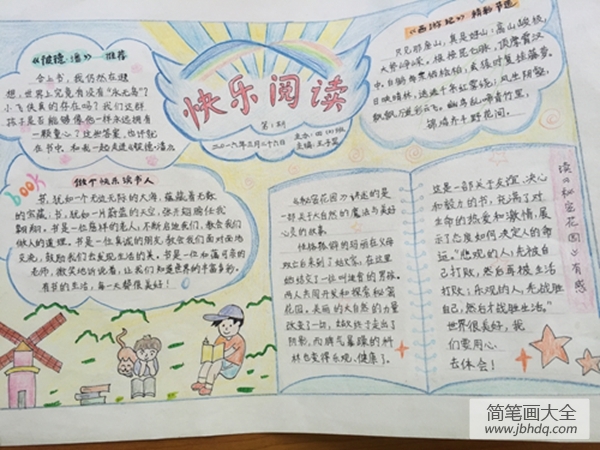 《彼德·潘》—推荐
合上书，我仍然在遐
想，世界上究竟有没有“永无岛”？
小飞侠真的存在吗？我们这群
孩子是否能够像他一样永远拥有
一颗童心？这些答案，也许就
在书中，和我一起走进《彼德·潘》
快乐阅读
第1期
二〇一六年三月二十六日
主编：王子墨
《西游记》精彩节选
只见那座山，真是好山：高山峻极，
大势峥嵘。根接昆仑脉，顶摩霄汉
中。
日映晴林，
book
做个快乐读书人
书，犹如一个无边无际的大海，蕴藏着无数
的宝藏；书，犹如一片蔚蓝的天空，张开翅膀任我
翱翔；书是一位慈祥的老人，不断启迪我们，教会我们
做人的道理。书是一位真诚的朋友，教会我们面对面地
交流，鼓励我们去发现生活的美。书是一位和蔼可亲的
老师，微笑地诉说着，让我们知道世界的丰富多彩。
有书的生活，每一天都很美好！
《秘密花园》讲述的是
一部关于大自然的魔法与美好
心灵的故事。
性格孤僻的玛丽在父母
双亡后来到了姑父家，在这里
她结交了一位叫迪肯的男孩。
两人共同开发和探索秘密
花园，美丽的大自然的力量
改变了一切，姑父终于走出了
阴影，而脾气暴躁的科
林也变得乐观、健康了。
这是一部关于友谊、决心
和毅力的书，充满了对
生命的热爱和激情，展
示了态度如何决定人的命
运。“悲观的人，先被自
己打败，然后再被生活
打败；乐观的人，先战胜
自己，然后才战胜生活。”
世界很美好，我
们要用心
去体会！
读《秘密花园》有感
简笔画大全
www.jbhdq.com